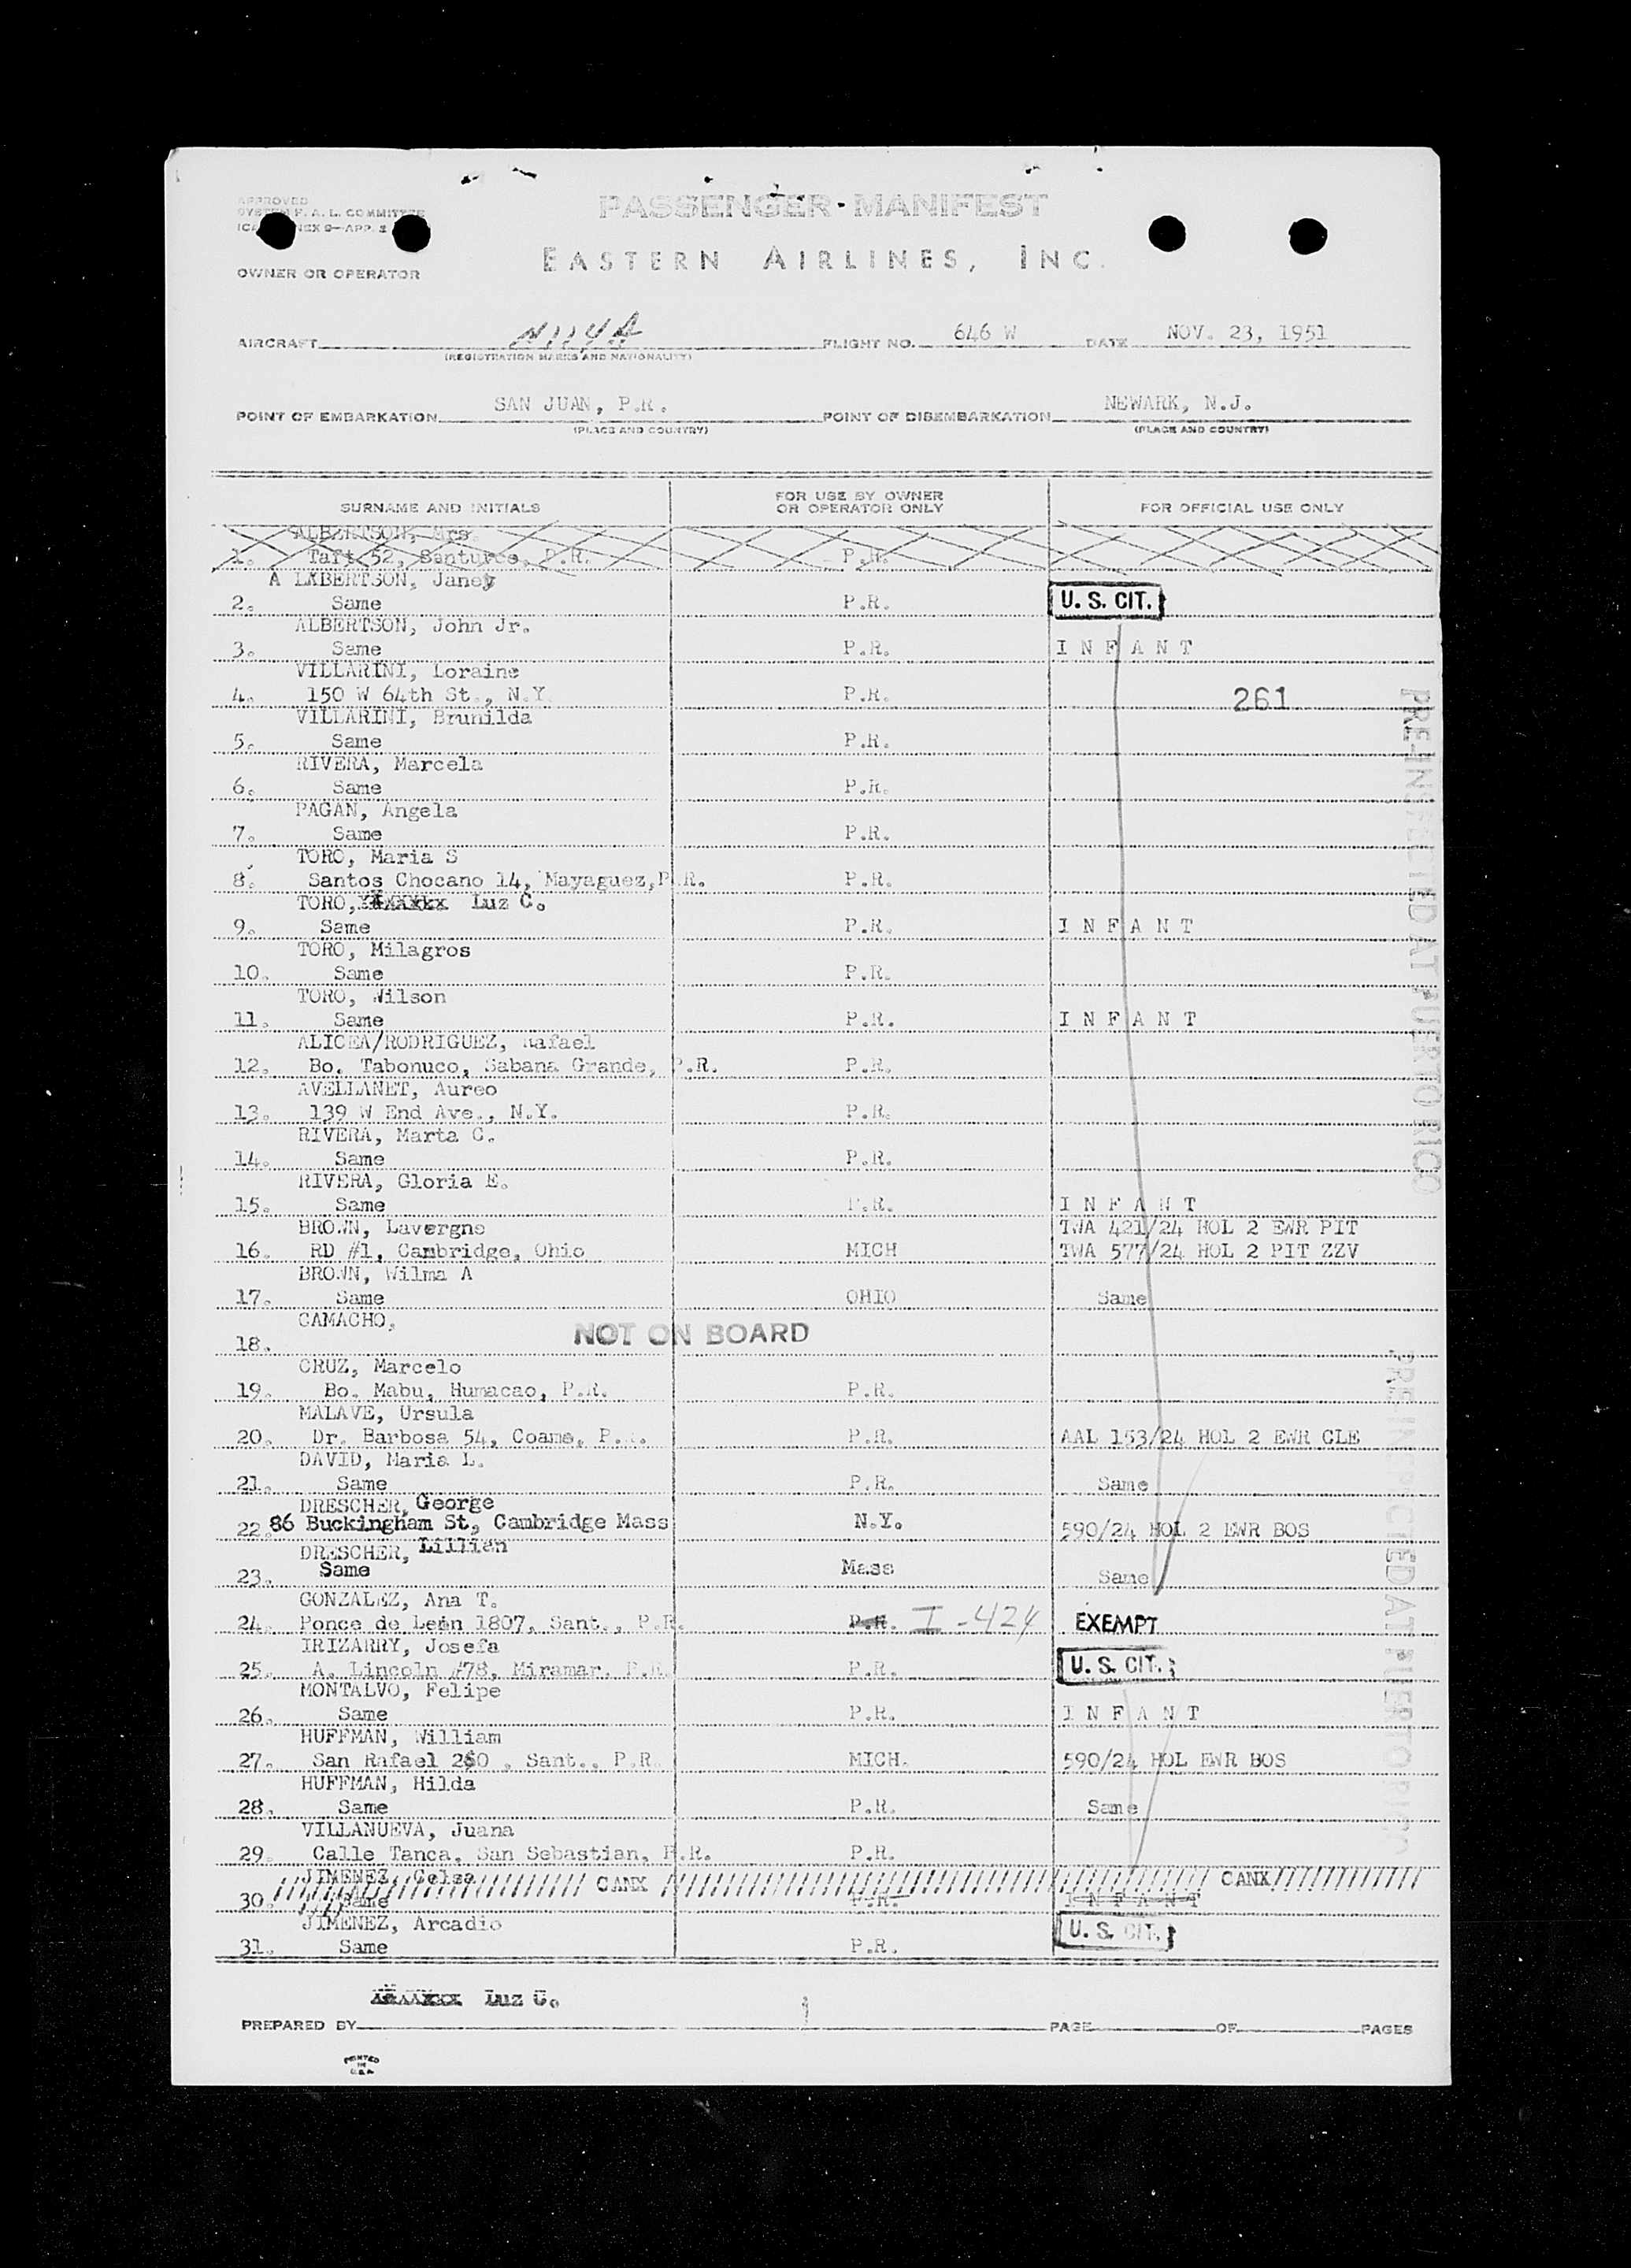 APPROVED
SYSTEM F. A. L. COMMITTEE
ICA NEX 9—APP. 2
PASSENGER MANIFEST
EASTERN AIRLINES, INC.
OWNER OR OPERATOR
AIRCRAFT N114A FLIGHT NO. 646 W DATE NOV. 23, 1951
(REGISTRATION MARKS AND NATIONALITY)
POINT OF EMBARKATION SAN JUAN, P.R. POINT OF DISEMBARKATION NEWARK, N.J.
(PLACE AND COUNTRY) (PLACE AND COUNTRY)
SURNAME AND INITIALS FOR USE BY OWNER OR OPERATOR ONLY FOR OFFICIAL USE ONLY
ALBERTSON, Mrs.
1. Taft 52, Santurce, P.R. P.R.
A LABERTSON, Janey
2. Same P.R. U. S. CIT.
ALBERTSON, John Jr.
3. Same P.R. I N F A N T
VILLARINI, Loraine
4. 150 W 64th St., N.Y. P.R. 261
VILLARINI, Brunilda
5. Same P.R.
RIVERA, Marcela
6. Same P.R.
PAGAN, Angela
7. Same P.R.
TORO, Maria S
8. Santos Chocano 14, Mayaguez, P.R. P.R.
TORO, Luz C.
9. Same P.R. I N F A N T
TORO, Milagros
10. Same P.R.
TORO, Wilson
11. Same P.R. I N F A N T
ALICEA/RODRIGUEZ, Rafael
12. Bo. Tabonuco, Sabana Grande, P.R. P.R.
AVELLANET, Aureo
13. 139 W End Ave., N.Y. P.R.
RIVERA, Marta C.
14. Same P.R.
RIVERA, Gloria E.
15. Same P.R. I N F A N T
BROWN, Lavergne TWA 421/24 HOL 2 EWR PIT
16. RD #1, Cambridge, Ohio MICH TWA 577/24 HOL 2 PIT ZZV
BROWN, Wilma A
17. Same OHIO Same
CAMACHO,
18. NOT ON BOARD
CRUZ, Marcelo
19. Bo. Mabu, Humacao, P.R. P.R.
MALAVE, Ursula
20. Dr. Barbosa 54, Coamo, P.R. P.R. AAL 153/24 HOL 2 EWR CLE
DAVID, Maria L.
21. Same P.R. Same
DRESCHER, George
22. 86 Buckingham St, Cambridge Mass N.Y. 590/24 HOL 2 EWR BOS
DRESCHER, Lillian
23. Same Mass Same
GONZALEZ, Ana T.
24. Ponce de León 1807, Sant., P.R. P.R. I-424 EXEMPT
IRIZARRY, Josefa
25. A. Lincoln #78, Miramar, P.R. P.R. U. S. CIT.
MONTALVO, Felipe
26. Same P.R. I N F A N T
HUFFMAN, William
27. San Rafael 260 , Sant., P.R. MICH. 590/24 HOL EWR BOS
HUFFMAN, Hilda
28. Same P.R. Same
VILLANUEVA, Juana
29. Calle Tanca, San Sebastian, P.R. P.R.
JIMENEZ, Celsa CANX CANX
30. Same P.R. I N F A N T
JIMENEZ, Arcadio
31. Same P.R. U. S. CIT.
PRE-INSPECTED AT PUERTO RICO
PRE-INSPECTED AT PUERTO RICO
Luz C.
PREPARED BY PAGE OF PAGES
PRINTED
IN
U.S.A.